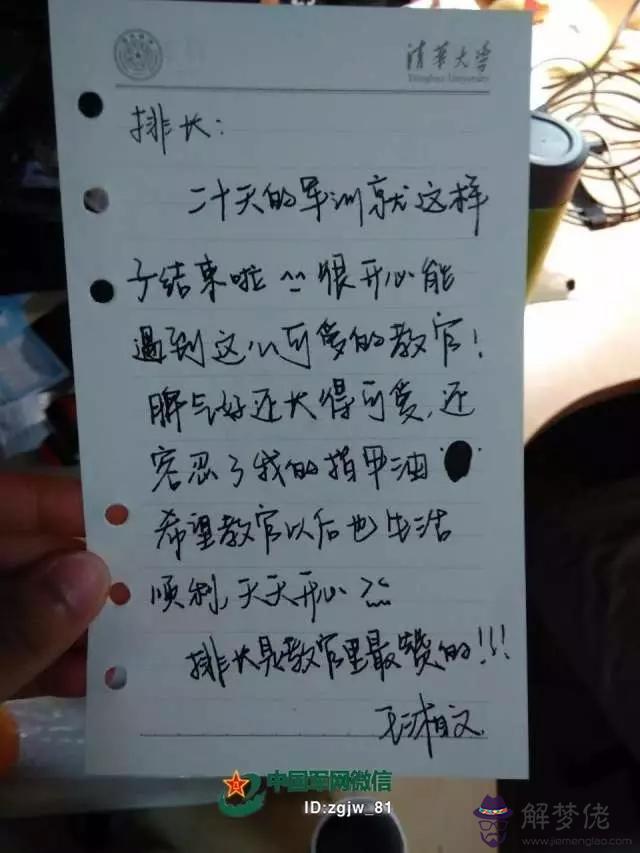 清华大学
Tsinghua University
排长:
二十天的军训就这样
子结束啦 ^^ 很开心能
遇到这么可爱的教官!
脾气好还长得可爱,还
容忍了我的指甲油
希望教官以后也生活
顺利,天天开心 >_<
排长是教官里最赞的!!!
中国军网微信
ID:zgjw_81
解梦佬
www.jiemenglao.com